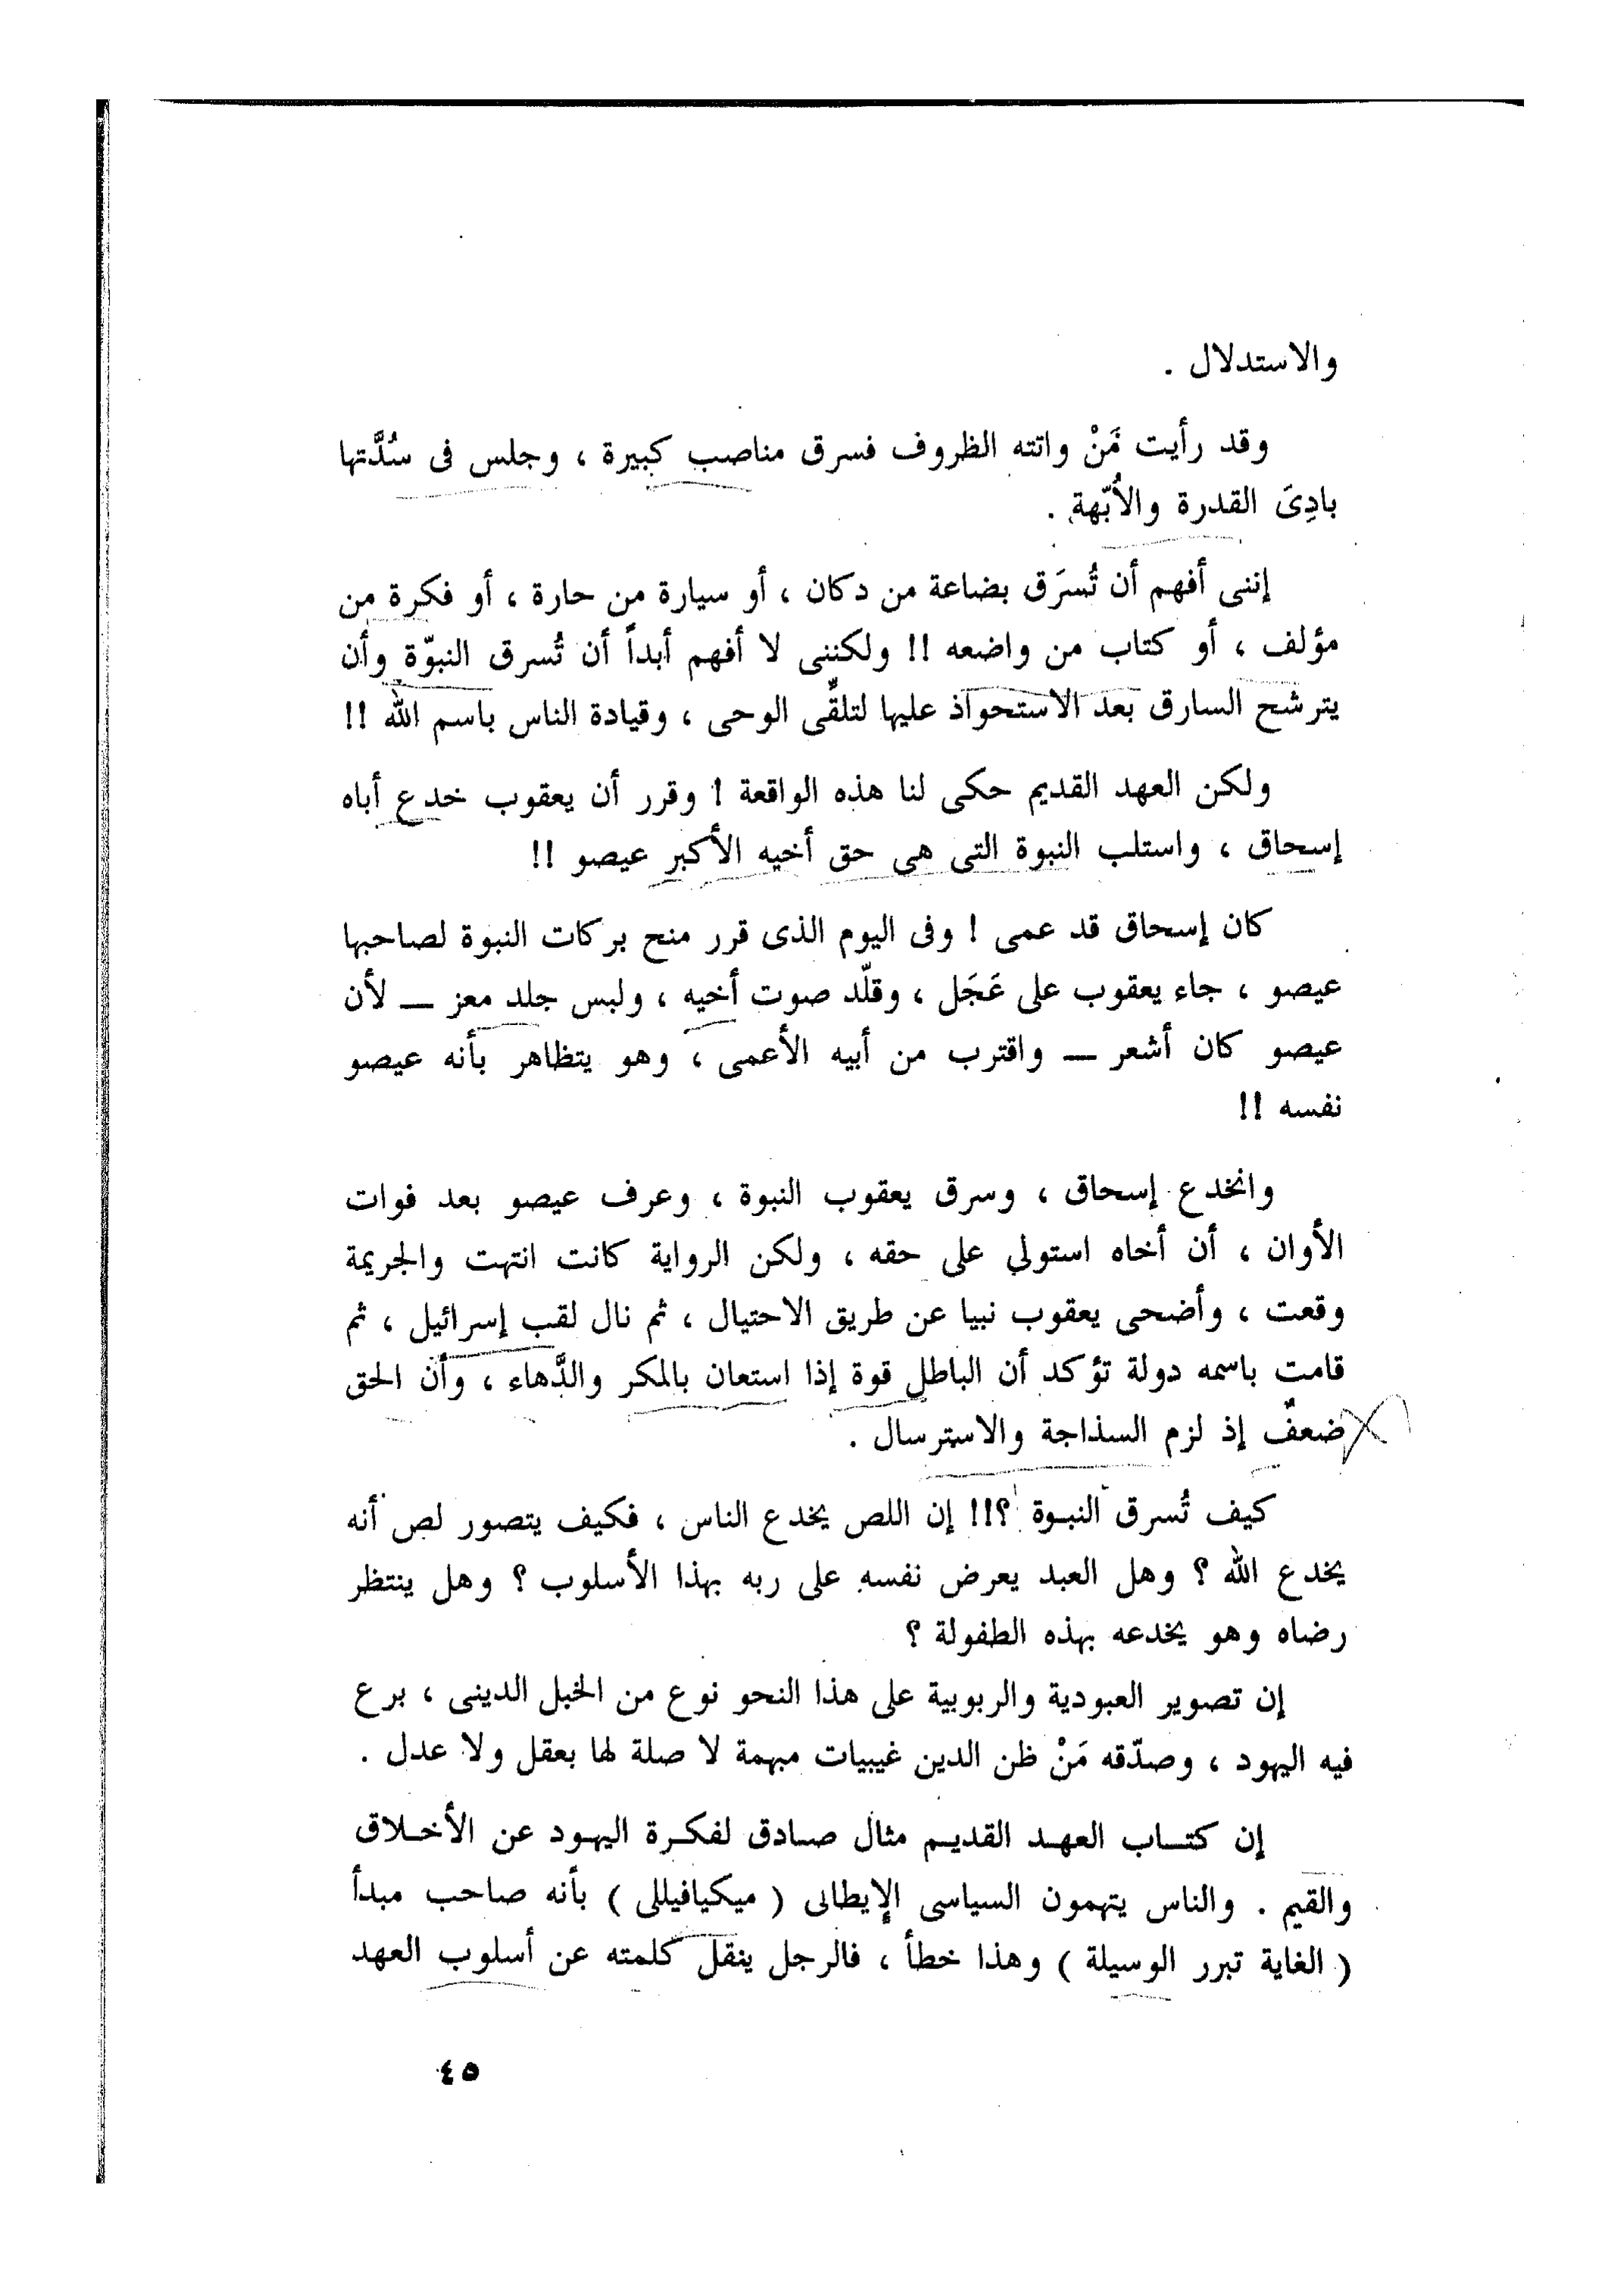 والاستدلال .
وقد رأيت مَنْ واتته الظروف فسرق مناصب كبيرة ، وجلس فى سُدَّتها
بادِىَ القدرة والأُبّهة .
إننى أفهم أن تُسرَق بضاعة من دكان ، أو سيارة من حارة ، أو فكرة من
مؤلف ، أو كتاب من واضعه !! ولكننى لا أفهم أبداً أن تُسرق النبوّة وأن
يترشح السارق بعد الاستحواذ عليها لتلقِّى الوحى ، وقيادة الناس باسم الله !!
ولكن العهد القديم حكى لنا هذه الواقعة ! وقرر أن يعقوب خدع أباه
إسحاق ، واستلب النبوة التى هى حق أخيه الأكبر عيصو !!
كان إسحاق قد عمى ! وفى اليوم الذى قرر منح بركات النبوة لصاحبها
عيصو ، جاء يعقوب على عَجَل ، وقلّد صوت أخيه ، ولبس جلد معز — لأن
عيصو كان أشعر — واقترب من أبيه الأعمى ، وهو يتظاهر بأنه عيصو
نفسه !!
وانخدع إسحاق ، وسرق يعقوب النبوة ، وعرف عيصو بعد فوات
الأوان ، أن أخاه استولي على حقه ، ولكن الرواية كانت انتهت والجريمة
وقعت ، وأضحى يعقوب نبيا عن طريق الاحتيال ، ثم نال لقب إسرائيل ، ثم
قامت باسمه دولة تؤكد أن الباطل قوة إذا استعان بالمكر والدَّهاء ، وأن الحق
ضعفٌ إذ لزم السذاجة والاسترسال .
كيف تُسرق النبوة ؟!! إن اللص يخدع الناس ، فكيف يتصور لص أنه
يخدع الله ؟ وهل العبد يعرض نفسه على ربه بهذا الأسلوب ؟ وهل ينتظر
رضاه وهو يخدعه بهذه الطفولة ؟
إن تصوير العبودية والربوبية على هذا النحو نوع من الخبل الدينى ، برع
فيه اليهود ، وصدّقه مَنْ ظن الدين غيبيات مبهمة لا صلة لها بعقل ولا عدل .
إن كتاب العهد القديم مثال صادق لفكرة اليهود عن الأخلاق
والقيم . والناس يتهمون السياسى الإيطالى ( ميكيافيللى ) بأنه صاحب مبدأ
( الغاية تبرر الوسيلة ) وهذا خطأ ، فالرجل ينقل كلمته عن أسلوب العهد
٤٥